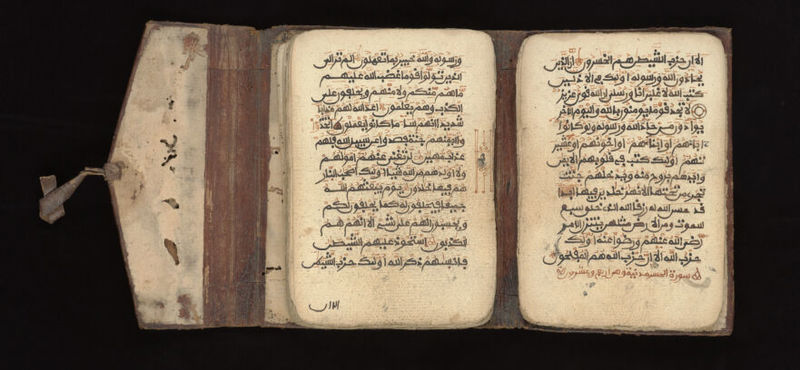 ورسوله والله خبير بما تعملون الم تر الى
الذين تولوا قوما غضب الله عليهم
ما هم منكم ولا منهم ويحلفون على
الكذب وهم يعلمون اعد الله لهم عذابا
شديدا انهم سا ما كانوا يعملون اتخذوا
ايمنهم جنة فصدوا عن سبيل الله فلهم
عذاب مهين لن تغني عنهم امولهم
ولا اولدهم من الله شيا اوليك اصحب النار
هم فيها خلدون يوم يبعثهم الله
جميعا فيحلفون له كما يحلفون لكم
ويحسبون انهم على شيء الا انهم هم
الكذبون استحوذ عليهم الشيطن
فانسيهم ذكر الله اوليك حزب الشيطن
الا ان
الا ان حزب الشيطن هم الخسرون ان الذين
يحادون الله ورسوله اوليك في الاذلين
كتب الله لاغلبن انا ورسلي ان الله قوي عزيز
لا تجد قوما يومنون بالله واليوم الاخر
يوادون من حاد الله ورسوله ولو كانوا
اباءهم او ابناءهم او اخونهم او عشير
تهم اوليك كتب في قلوبهم الايمن
وايدهم بروح منه ويدخلهم جنت
تجري من تحتها الانهر خلدين فيها ابدا
قد الله له رزقا الله الذي خلق سبع
سموت ومن الارض مثلهن يتنزل الامر
رضي الله عنهم ورضوا عنه اوليك
حزب الله الا ان حزب الله هم المفلحون
سورة الحشر مدنية وهي اربع وعشرون